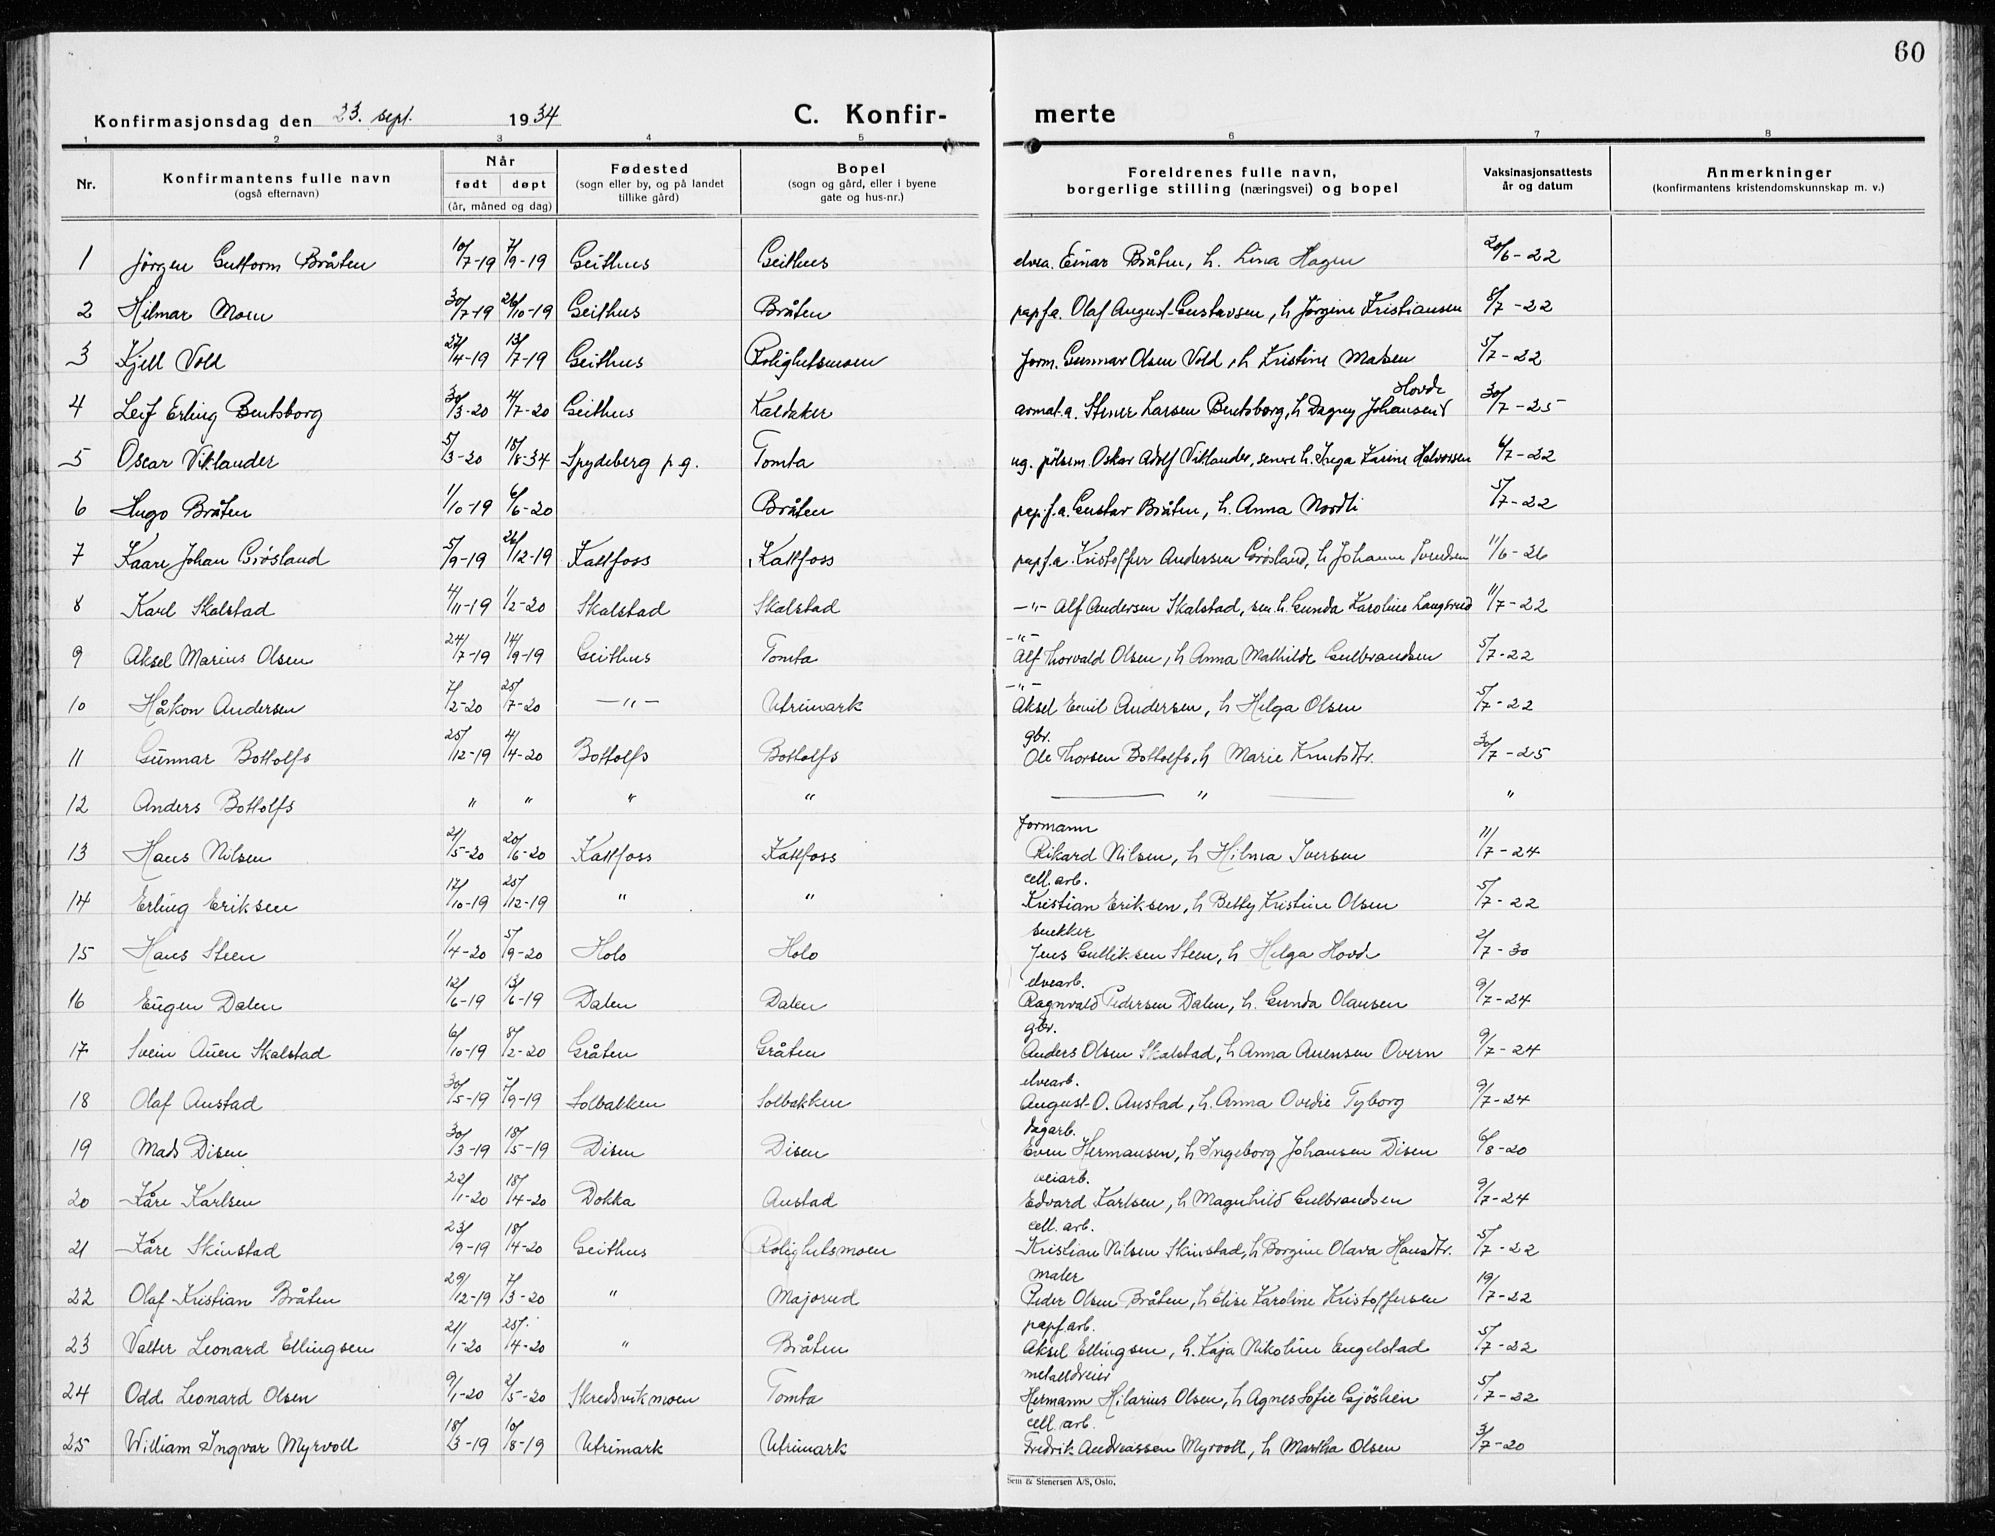 60
Konfirmasjonsdag den 23. sept. 1934 C. Konfir- merte
1 2 3 4 5 6 7 8
Nr. Konfirmantens fulle navn (også efternavn) Når født døpt (år, måned og dag) Fødested (sogn eller by, og på landet tillike gård) Bopel (sogn og gård, eller i byene gate og hus-nr.) Foreldrenes fulle navn, borgerlige stilling (næringsvei) og bopel Vaksinasjonsattests år og datum Anmerkninger (konfirmantens kristendomskunnskap m. v.)
1 Jörgen Guttorm Bråten 10/7-19 7/9-19 Geithus Geithus elvea. Einar Bråten, h. Lina Hagen 20/6-22
2 Hilmar Moen 30/7-19 26/10-19 Geithus Bråten papf.a. Olaf August Gustavsen, h Jörgine Kristiansen 8/7-22
3 Kjell Vold 27/4-19 13/7-19 Geithus Rolighetsmoen form. Gunnar Olsen Vold, h Kristine Madsen 5/7-22
4 Leif Erling Bentsborg 30/3-20 4/7-20 Geithus Kaldaker armat.a. Stener Larsen Bentsborg, h Dagny Johansen Hovde 30/7-25
5 Oscar Viklander 5/3-20 15/8-34 Spydeberg p.g. Tomta ug. pölsem. Oskar Adolf Viklander, senere h. Inga Karine Halvorsen 6/7-22
6 Hugo Bråten 1/10-19 6/6-20 Bråten pap.f.a. Gustav Bråten, h. Anna Nordli 5/7-22
7 Kaare Johan Grösland 5/9-19 26/12-19 Kattfoss Kattfoss papf.a. Kristoffer Andersen Grösland, h Johanne Svendsen 11/6-26
8 Karl Skalstad 4/11-19 1/2-20 Skalstad Skalstad —"— Alf Andersen Skalstad, sen. h. Gunda Karoline Langerud 11/7-22
9 Aksel Marius Olsen 24/7-19 14/9-19 Geithus Tomta —"— Alf Thorvald Olsen, h Anna Mathilde Gulbrandsen 5/7-22
10 Håkon Andersen 7/2-20 25/7-20 —"— Utrimark —"— Aksel Emil Andersen, h Helga Olsen 5/7-22
11 Gunnar Bottolfs 25/12-19 4/4-20 Bottolfs Bottolfs gbr. Ole Thorsen Bottolfs, h Marie Knutsdtr. 30/7-25
12 Anders Bottolfs " " " " —— " —— "
13 Hans Nilsen 2/5-20 20/6-20 Kattfoss Kattfoss formann Rikard Nilsen, h Hilma Iversen 11/7-24
14 Erling Eriksen 17/10-19 25/12-19 " " cell. arb. Kristian Eriksen, h Betty Kristine Olsen 5/7-22
15 Hans Steen 1/4-20 5/9-20 Holo Holo snekker Jens Gulliksen Steen, h Helga Hovde 2/7-30
16 Eugen Dalen 12/6-19 13/6-19 Dalen Dalen elvearb. Ragnvald Pedersen Dalen, h. Gunda Olausen 9/7-24
17 Svein Auen Skalstad 6/10-19 8/2-20 Gråten Gråten gbr. Anders Olsen Skalstad, h Anna Auensen Overn 9/7-24
18 Olaf Austad 30/5-19 7/9-19 Solbakken Solbakken elvearb. August O. Austad, h. Anna Ovedie Tyborg 9/7-24
19 Mads Disen 30/3-19 18/5-19 Disen Disen dagarb. Even Hermansen, h Ingeborg Johansen Disen 6/8-20
20 Kåre Karlsen 22/1-20 18/4-20 Dokka Austad veiarb. Edvard Karlsen, h Magnhild Gulbrandsen 9/7-24
21 Kåre Skinstad 23/9-19 18/4-20 Geithus Rolighetsmoen cell. arb. Kristian Nilsen Skinstad, h Borgine Olava Hansdtr. 5/7-22
22 Olaf Kristian Bråten 29/12-19 7/3-20 " Majorud maler Peder Olsen Bråten, h Elise Karoline Kristoffersen 19/7-22
23 Valter Leonard Ellingsen 21/1-20 25/4-20 " Bråten papf.arb. Aksel Ellingsen, h. Kaja Nikoline Engelstad 5/7-22
24 Odd Leonard Olsen 9/1-20 2/5-20 Skredsvikmoen Tomta metalldreier Hermann Hilarius Olsen, h Agnes Sofie Gjöslien 5/7-22
25 William Ingvar Myrvoll 18/3-19 10/8-19 Utrimark Utrimark cell. arb. Fredrik Andreassen Myrvoll, h Martha Olsen 3/7-20
Sem & Stenersen A/S, Oslo.